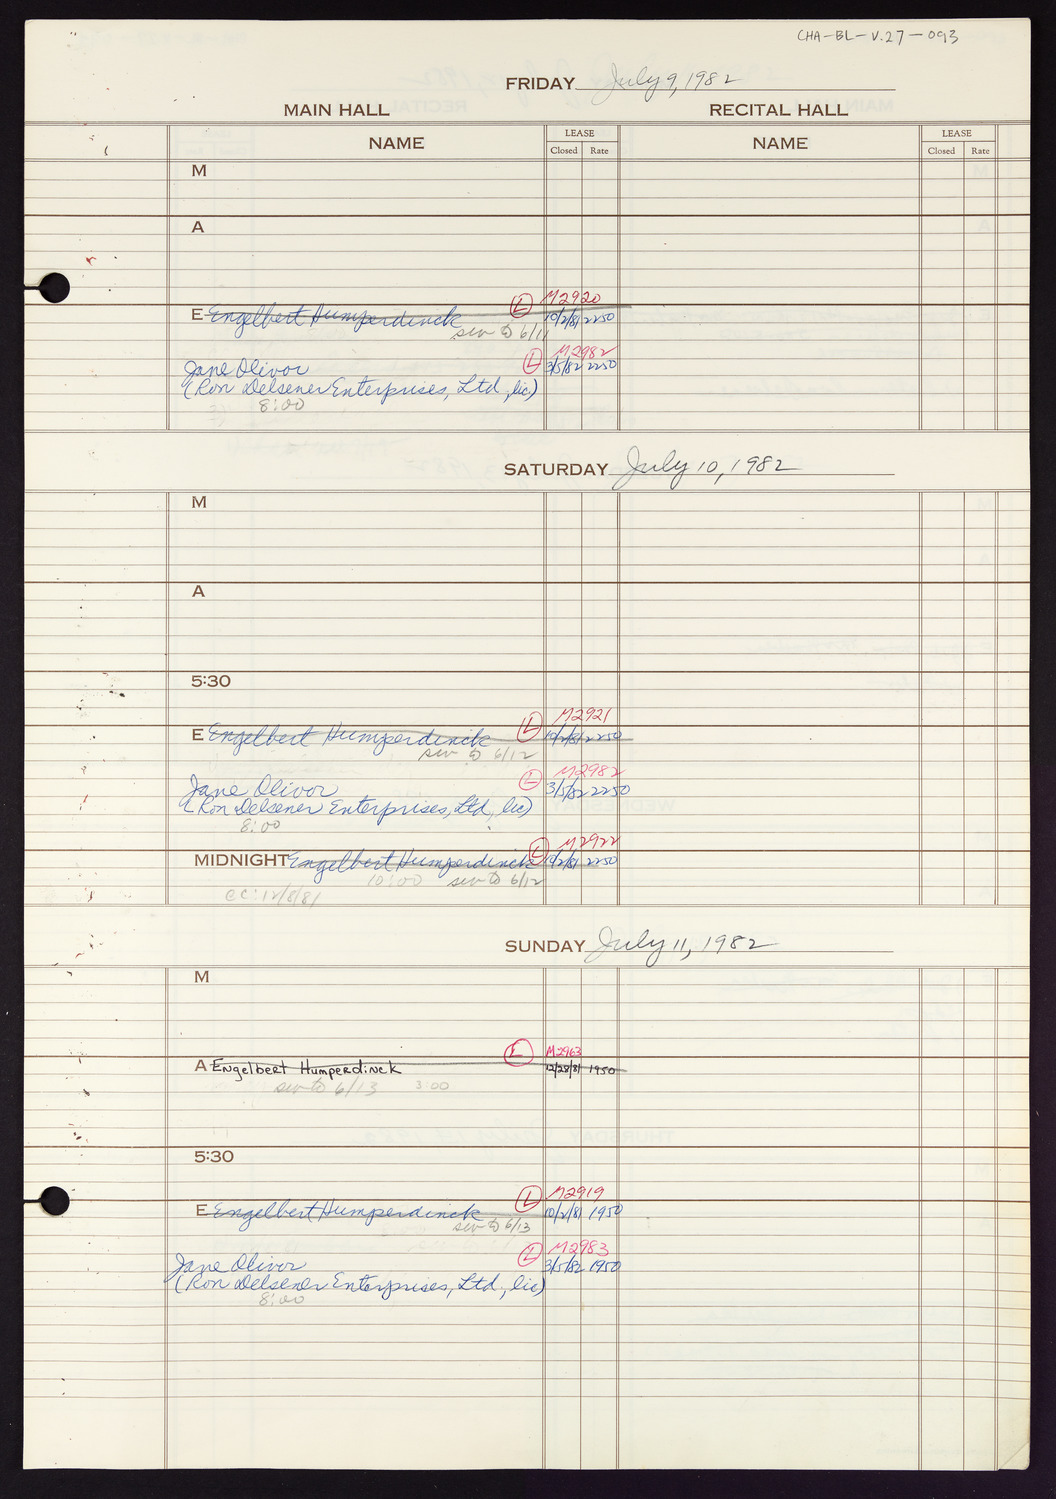 CHA-BL-V.27-093
FRIDAY July 9, 1982
MAIN HALL RECITAL HALL
NAME LEASE NAME LEASE
Closed Rate Closed Rate
M
A
L M2920
E Engelbert Humperdinck 10/2/81 2250
sev to 6/11
L M2982
Jane Olivor 3/5/82 2250
(Ron Delsener Enterprises, Ltd., lic)
8:00
SATURDAY July 10, 1982
M
A
5:30
L M2921
E Engelbert Humperdinck 10/2/81 2250
sev to 6/12
L M2982
Jane Olivor 3/5/82 2250
(Ron Delsener Enterprises, Ltd., lic)
8:00
L M2922
MIDNIGHT Engelbert Humperdinck 10/2/81 2250
10:00 sev to 6/12
cc: 12/8/81
SUNDAY July 11, 1982
M
L M2963
A Engelbert Humperdinck 12/28/81 1950
sev to 6/13 3:00
5:30
L M2919
E Engelbert Humperdinck 10/2/81 1950
sev to 6/13
L M2983
Jane Olivor 3/5/82 1950
(Ron Delsener Enterprises, Ltd., lic)
8:00